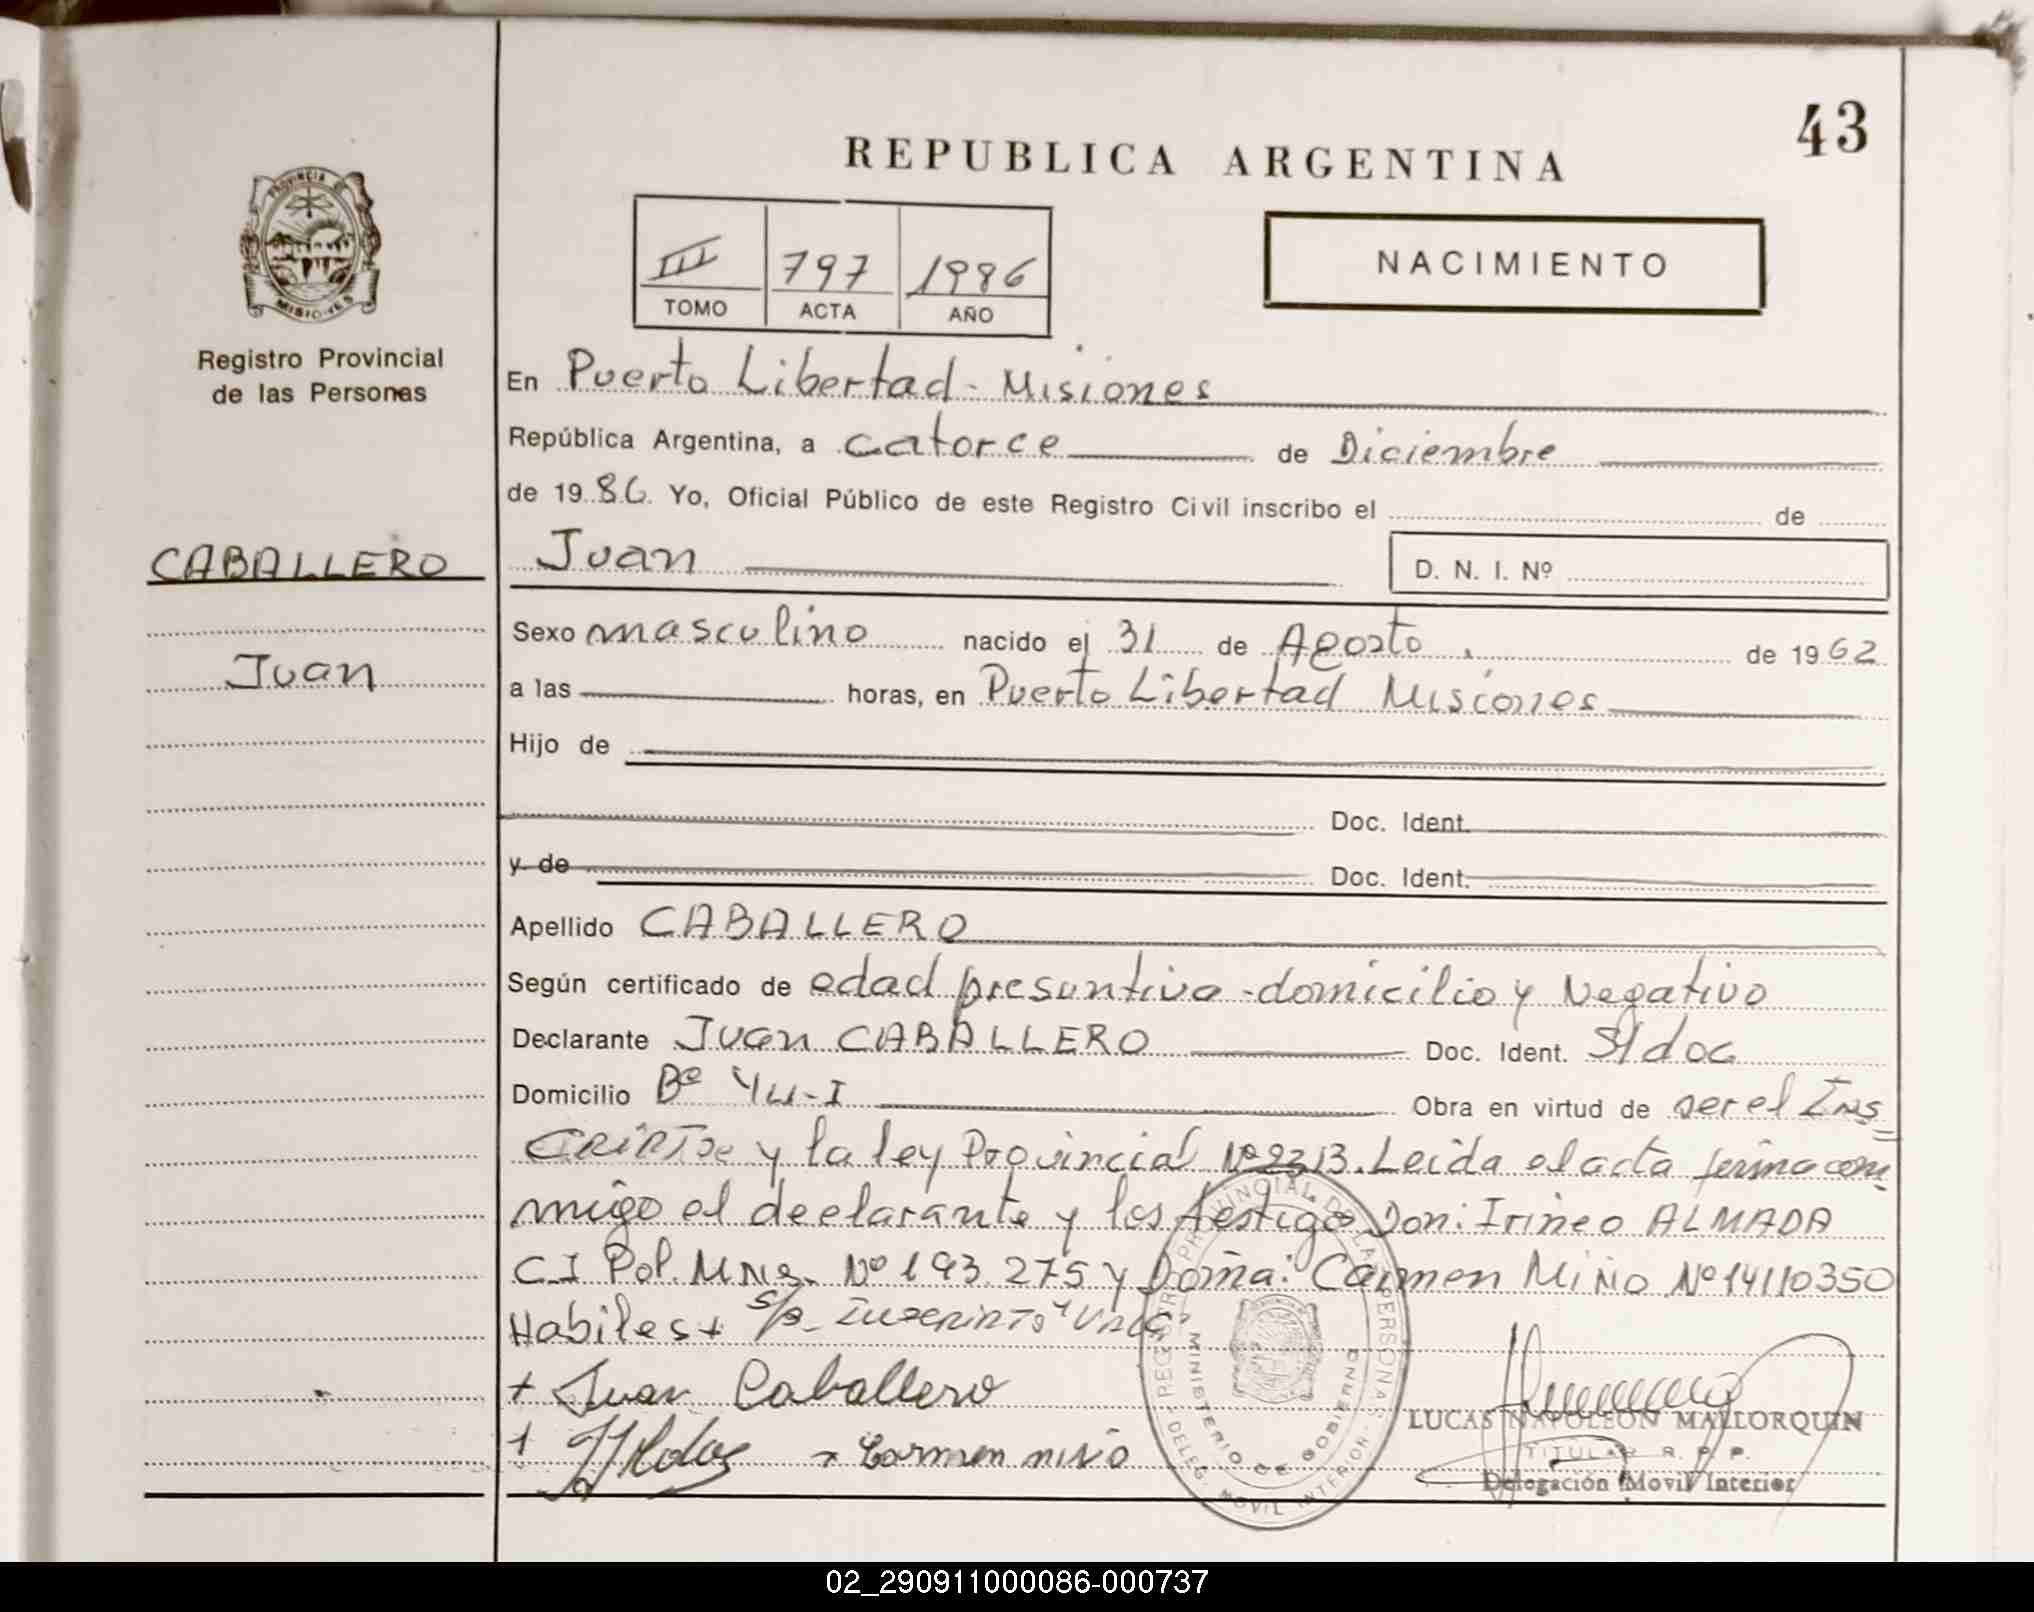 43
REPUBLICA ARGENTINA
PROVINCIA DE
MISIONES
Registro Provincial
de las Personas
III 797 1986
TOMO ACTA AÑO
NACIMIENTO
En Puerto Libertad - Misiones
República Argentina, a catorce de Diciembre
de 1986. Yo, Oficial Público de este Registro Civil inscribo el de
CABALLERO
Juan
Juan
D. N. I. Nº
Sexo masculino nacido el 31 de Agosto de 1962
a las horas, en Puerto Libertad Misiones
Hijo de
Doc. Ident.
y de Doc. Ident.
Apellido CABALLERO
Según certificado de edad presuntiva - domicilio y Negativo
Declarante Juan CABALLERO Doc. Ident. S/doc
Domicilio Bº YU-I Obra en virtud de ser el Ins=
y la ley Provincial Nº 2213. Leida el acta firma con
migo el declarante y los testigo Don: Irineo ALMADA
C I Pol. Mns. Nº 193.275 y Doña: Carmen Miño Nº 14110350
Habiles +
+ Juan Caballero
+ + Carmen miño
REGISTRO PROVINCIAL DE LAS PERSONAS
MINISTERIO DE GOBIERNO
DELEG. MOVIL INTERIOR
LUCAS NAPOLEON MALLORQUIN
TITULAR R. P. P.
Delegación Movil Interior
02_290911000086-000737